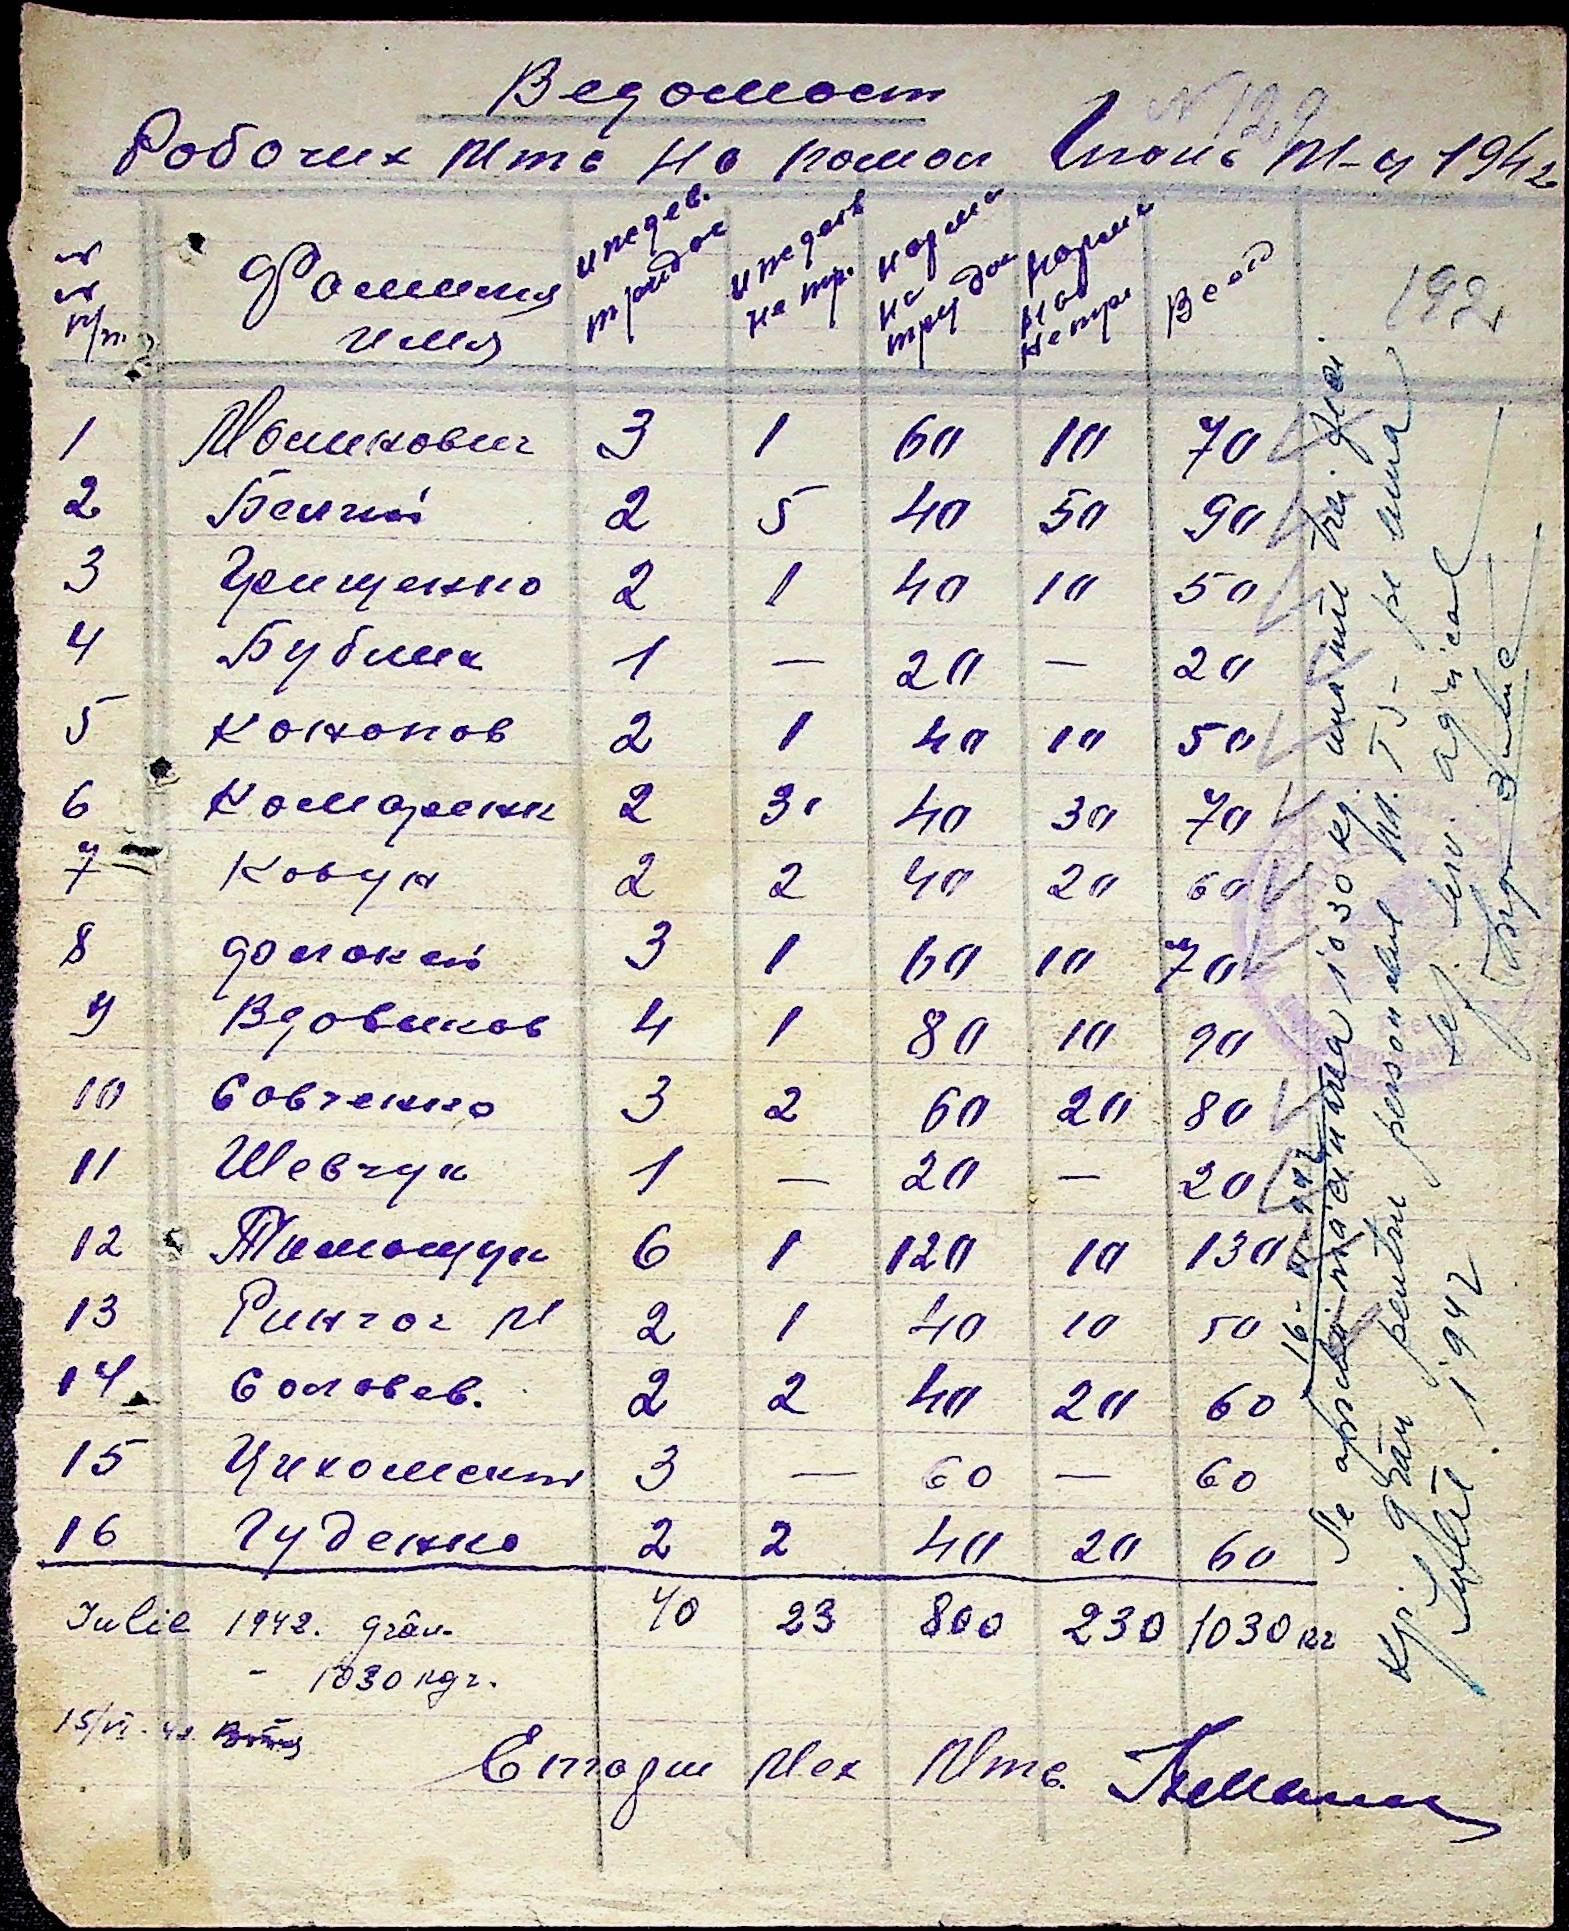 Ведомост
N 129
Робочих Мтс На помол Июнь М-ц 1942
Фамилия имя
иждев. трудос
иждев не тр.
норма на трудос
норма на нетру
Всего
192
1 Малинович 3 1 60 10 70
2 Белий 2 5 40 50 90
3 Грищенко 2 1 40 10 50
4 Бублик 1 — 20 — 20
5 Кононов 2 1 40 10 50
6 Комаренк 2 3 40 30 70
7 Ковун 2 2 40 20 60
8 3 1 60 10 70
9 Вдовиков 4 1 80 10 90
10 Совченко 3 2 60 20 80
11 Шевчук 1 — 20 — 20
12 Тимощук 6 1 120 10 130
13 Ринчог М 2 1 40 10 50
14 Соловев. 2 2 40 20 60
15 3 — 60 — 60
16 Гуденко 2 2 40 20 60
40 23 800 230 1030 кг
Iulie 1942. grâu.
- 1030 кgr.
15/VI-42.
Старш Мех Мтс.
Se aprobă măcinarea 1030 kg. una mie trei zeci
kgr. grâu pentru personalul M. T. S- pe luna
Iulie 1942
Șef. serv. agricol